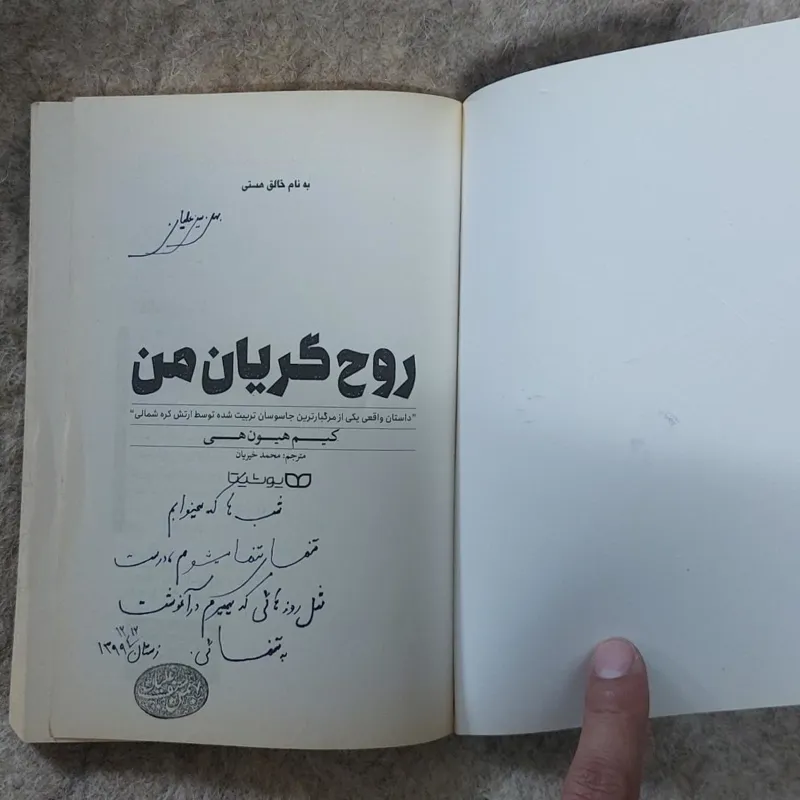 به نام خالق هستی
روح گریان من
"داستان واقعی یکی از مرگبارترین جاسوسان تربیت شده توسط ارتش کره شمالی"
کیم هیون هی
مترجم: محمد خیریان
یوشیتا
شب ها که میخوابم
تنهای تنها میشوم، درست
مثل روزهائی که میمیرم در آغوشت
به تنهائی.
زمستان ۱۳۹۹
۱۲/۱۲